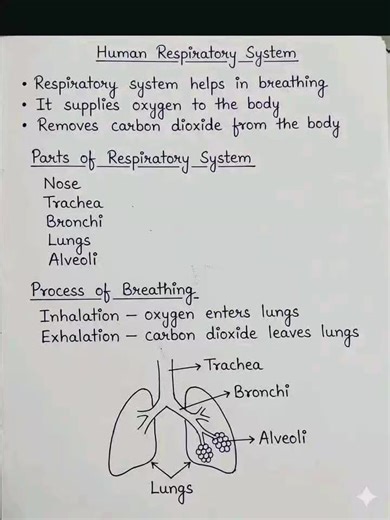 Human Respiratory System
• Respiratory system helps in breathing
• It supplies oxygen to the body
• Removes carbon dioxide from the body
Parts of Respiratory System
Nose
Trachea
Bronchi
Lungs
Alveoli
Process of Breathing
Inhalation – oxygen enters lungs
Exhalation – carbon dioxide leaves lungs
Trachea
Bronchi
Alveoli
Lungs